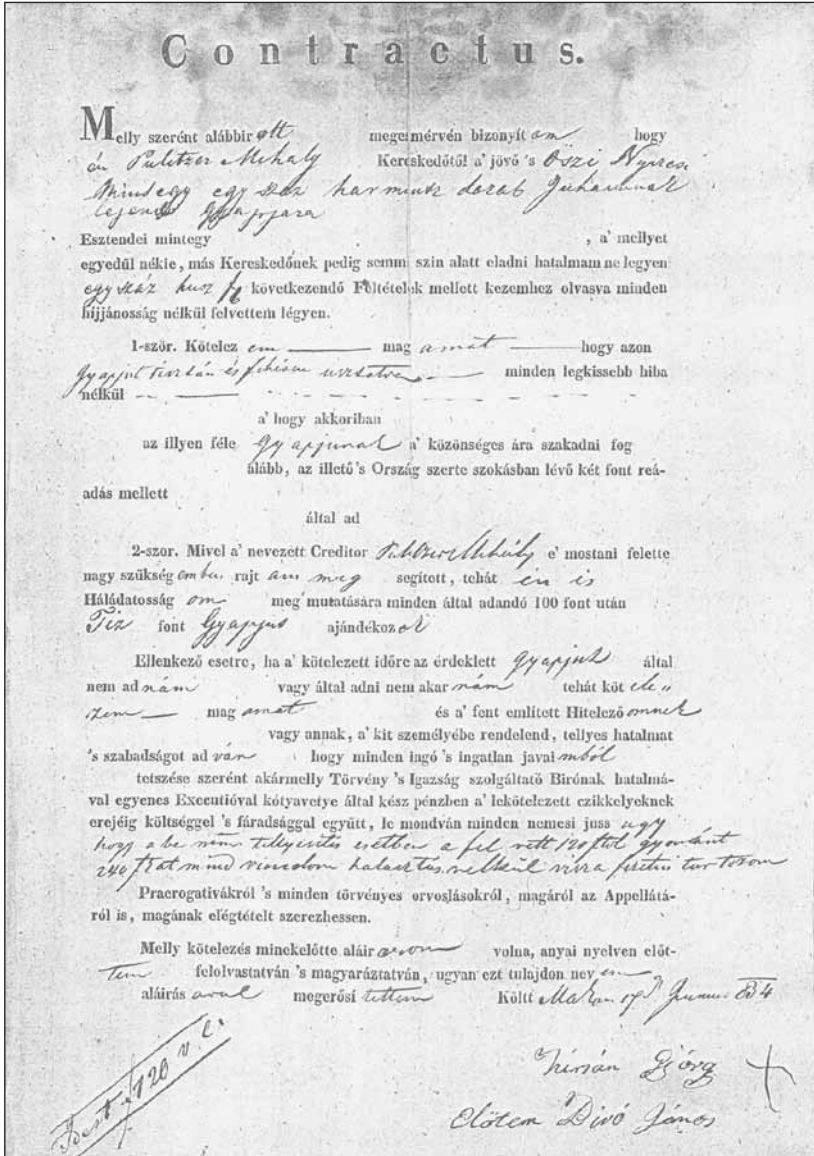 Contractus.
Melly szerént alábbir ott megesmérvén bizonyít om hogy
én Pulitzer Mihaly Kereskedőtől a' jövő 's Öszi Nyiresi
Mindegy egy száz harmintz darab Juhaimnak
lejendő Gyapjara
Esztendei mintegy , a' mellyet
egyedűl nékie, más Kereskedőnek pedig semmi szin alatt eladni hatalmam ne legyen
egy száz husz f következendő Feltételek mellett kezemhez olvasva minden
hijjánosság nélkül felvettem légyen.
1-ször. Kötelez em mag amat hogy azon
Gyapjut tisztán és fehéren usztatva minden legkissebb hiba
nélkűl
a' hogy akkoriban
az illyen féle Gyapjunak a' közönséges ára szakadni fog
álább, az illető 's Ország szerte szokásban lévő két font reá-
adás mellett
által ad
2-szor. Mivel a' nevezett Creditor Pulitzer Mihály e' mostani felette
nagy szükség emben rajt am meg segített, tehát én is
Háládatosság om meg mutatására minden által adandó 100 font után
Tiz font Gyapjut ajándékoz ok
Ellenkező esetre, ha a' kötelezett időre az érdeklett Gyapjut által
nem ad nám vagy által adni nem akar nám tehát köt ele
zem mag amat és a' fent említett Hitelező omnek
vagy annak, a' kit személyébe rendelend, tellyes hatalmat
's szabadságot ad ván hogy minden ingó 's ingatlan javai mból
tetszése szerént akármelly Törvény 's Igazság szolgáltató Birónak hatalmá-
val egyenes Executióval kótyavetye által kész pénzben a' lekötelezett czikkelyeknek
erejéig költséggel 's fáradsággal együtt, le mondván minden nemesi juss ugy
hogy a be nem tellyesités esetben a fel vett 120 ftot gyanánt
240 ftat mind vinculom halasztás nélkül vissza fizetni tartozom
Praerogativákról 's minden törvényes orvoslásokról, magáról az Appellátá-
ról is, magának elégtételt szerezhessen.
Melly kötelezés minekelőtte aláir arom volna, anyai nyelven előt-
tem felolvastatván 's magyaráztatván, ugyan ezt tulajdon nev em
aláirás avul megerősi tettem Költt Makon Junius 834
Gyórg
Elötem Divó János
Best f 120 v. c.